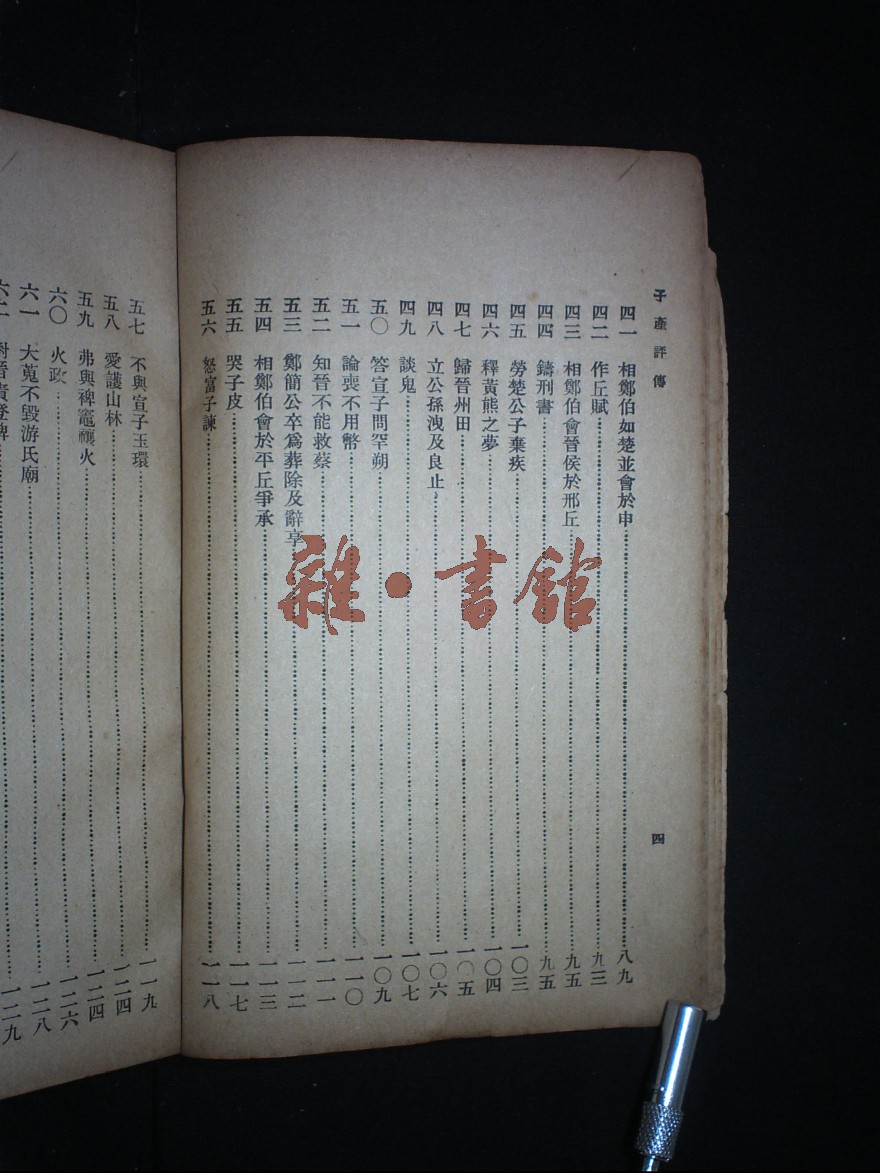 子產評傳
四一 相鄭伯如楚並會於申……八九
四二 作丘賦……九三
四三 相鄭伯會晉侯於邢丘……九五
四四 鑄刑書……九五
四五 勞楚公子棄疾……一〇三
四六 釋黃熊之夢……一〇四
四七 歸晉州田……一〇五
四八 立公孫洩及良止……一〇六
四九 談鬼……一〇七
五〇 答宣子問罕朔……一〇九
五一 論喪不用幣……一一〇
五二 知晉不能救蔡……一一一
五三 鄭簡公卒爲葬除及辭享……一一二
五四 相鄭伯會於平丘爭承……一一三
五五 哭子皮……一一七
五六 怒富子諫……一一八
四
五七 不與宣子玉環……一一九
五八 愛護山林……一二四
五九 弗與裨竈禳火……一二四
六〇 火政……一二六
六一 大蒐不毀游氏廟……一二八
六二 對晉責登陴……一二九
雜·書館